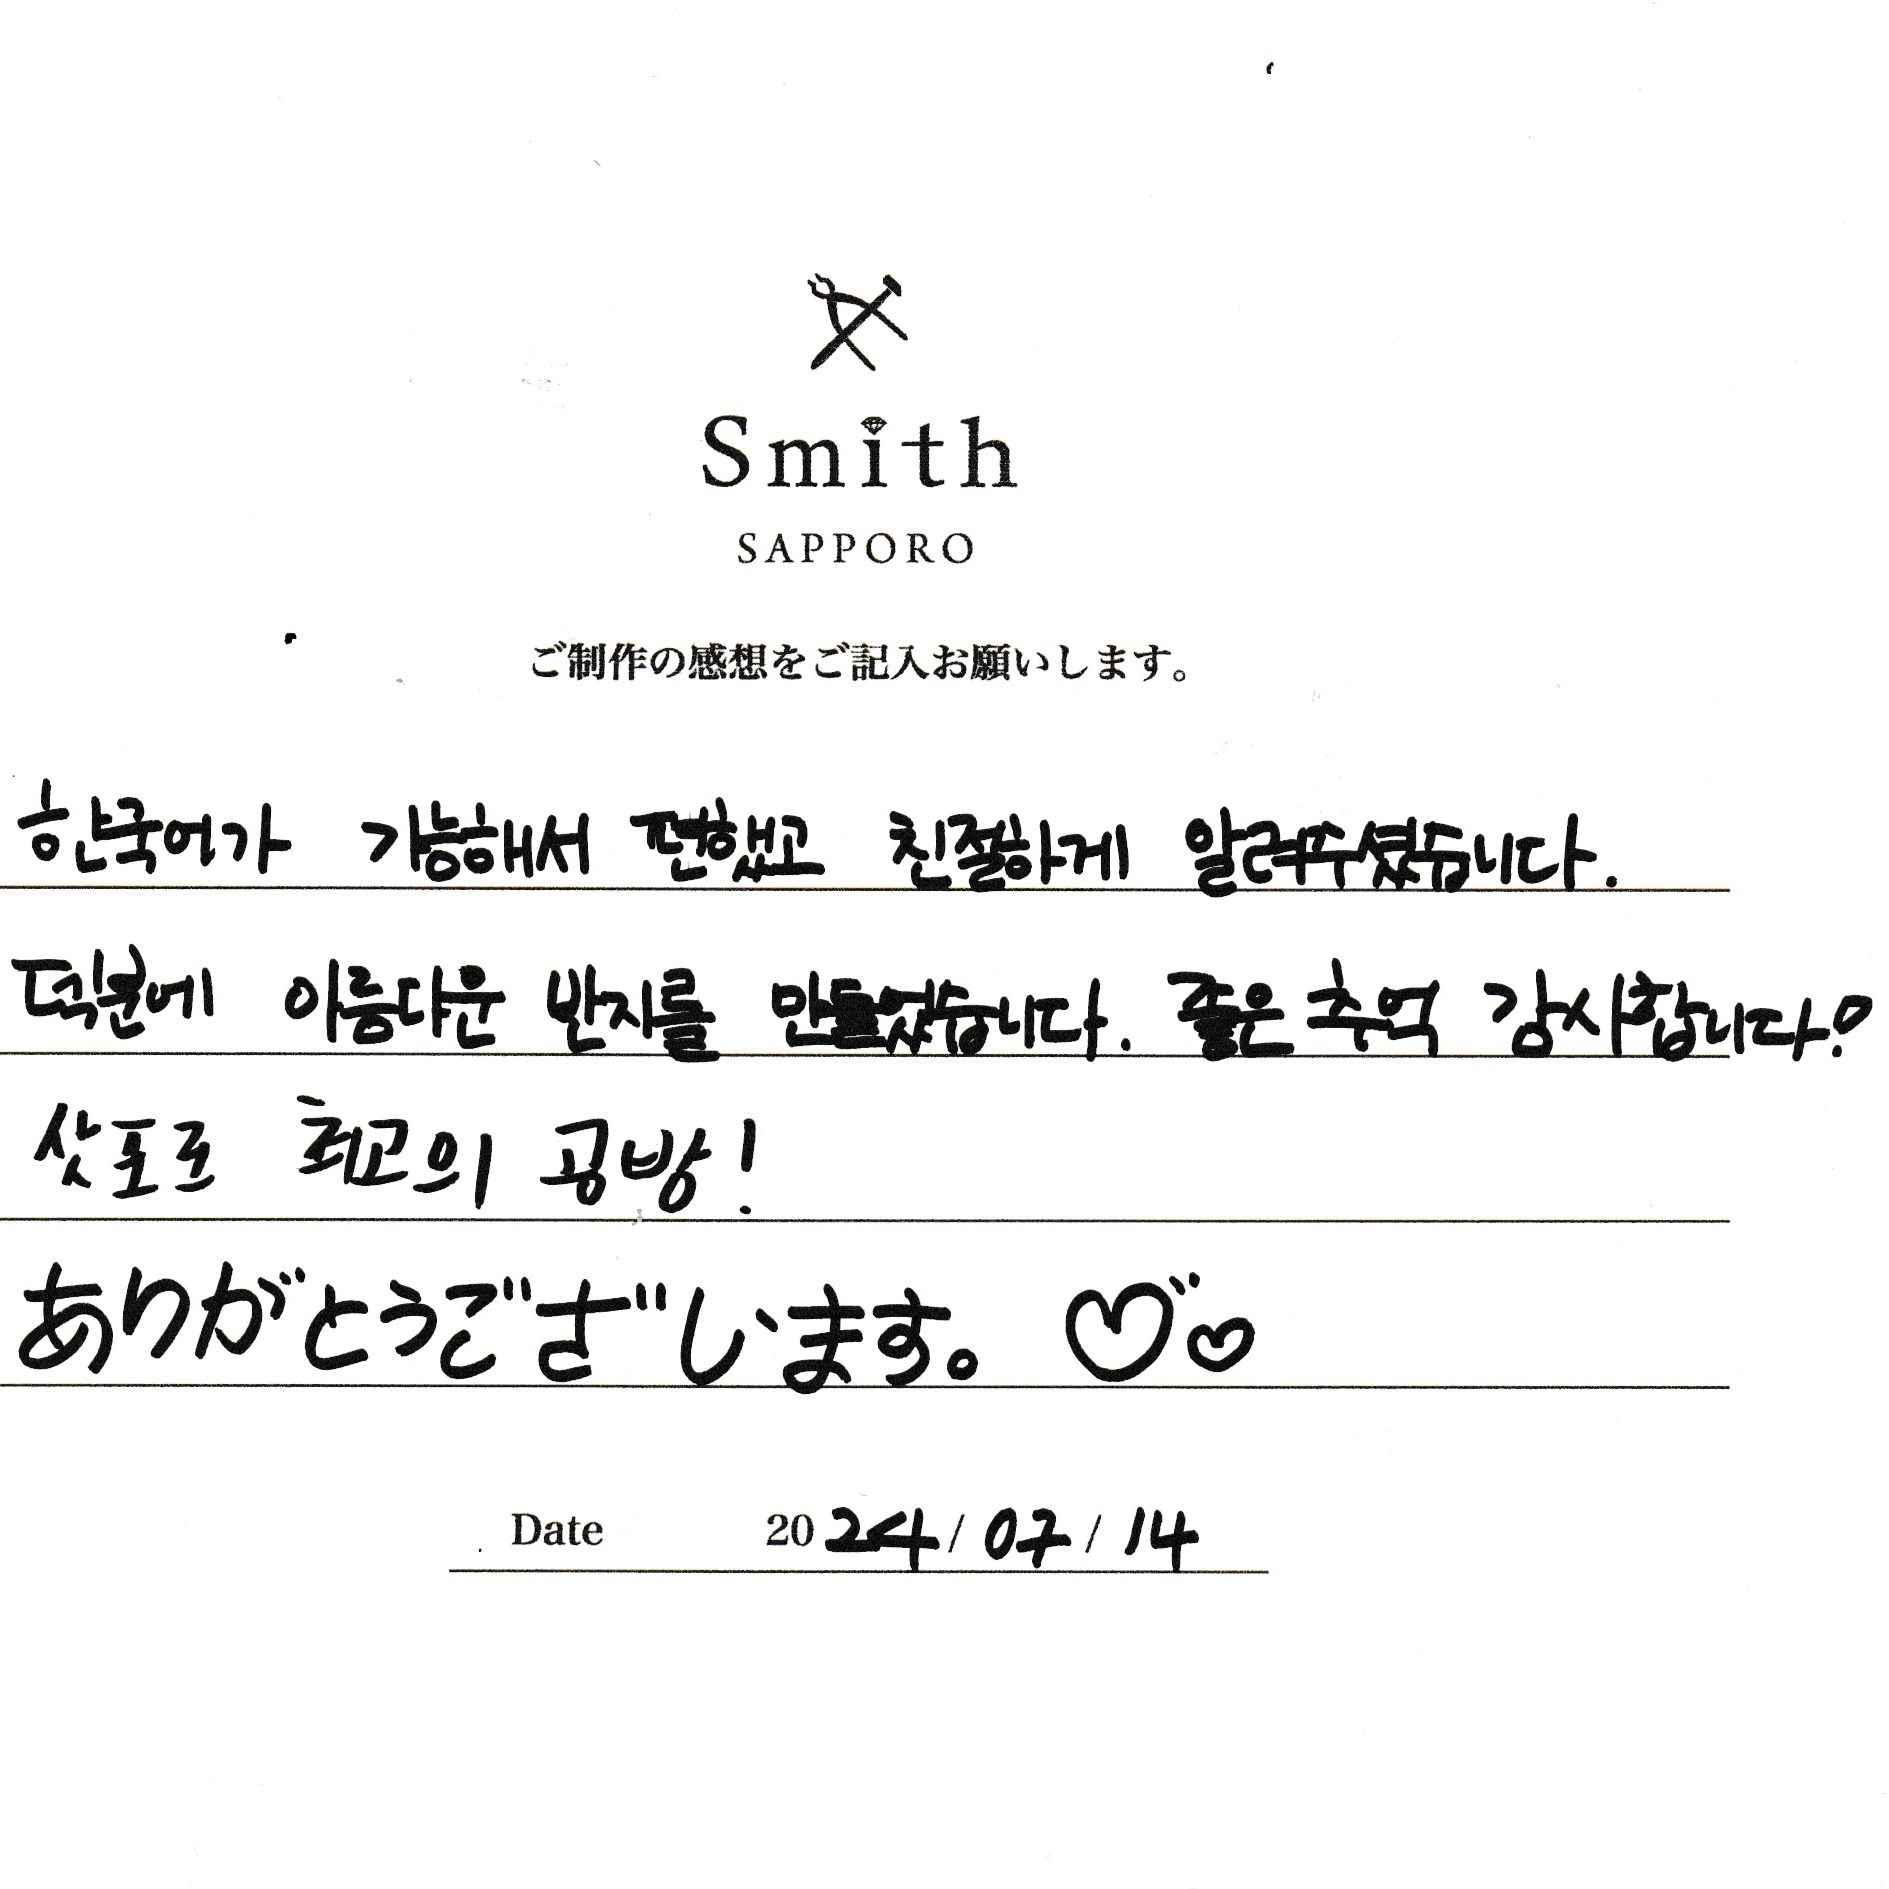 Smith
SAPPORO
ご制作の感想をご記入お願いします。
한국어가 가능해서 편했고 친절하게 알려주셨습니다.
덕분에 아름다운 반지를 만들었습니다. 좋은 추억 감사합니다!
삿포로 최고의 공방!
ありがとうございます。
Date 2024/07/14